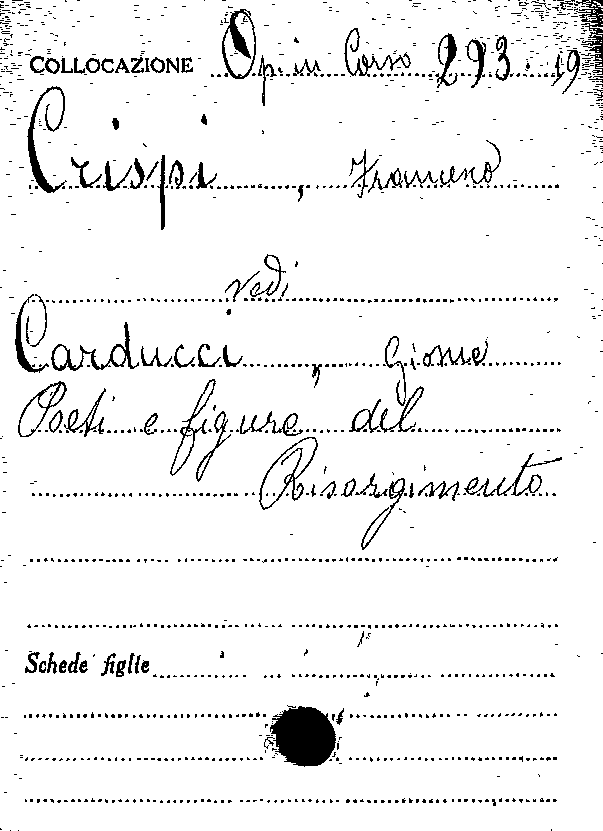 COLLOCAZIONE Op. in Corso 293. 19
Crispi, Francesco
vedi
Carducci, Giosue
Poeti e figure del
Risorgimento
Schede figlie